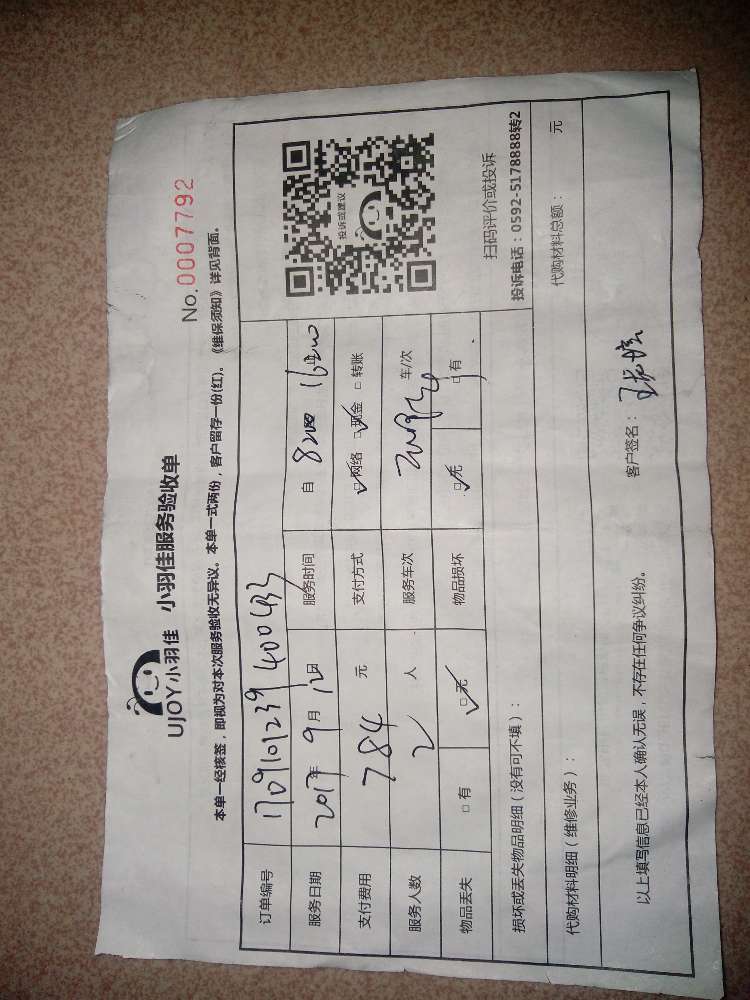 UJOY小羽佳 小羽佳服务验收单
No.0007792
本单一经核签，即视为对本次服务验收无异议。本单一式两份，客户留存一份(红)。《维保须知》详见背面。
订单编号 170910123940043
服务日期 2017年 9月 12日 服务时间 自 8:00 16:00
支付费用 784 元 支付方式 ☑网络 ☑现金 □转账
服务人数 2 人 服务车次 车/次
物品丢失 □有 ☑无 物品损坏 ☑无 □有
投诉或建议
扫码评价或投诉
投诉电话：0592-5178888转2
损坏或丢失物品明细（没有可不填）：
代购材料明细（维修业务）： 代购材料总额： 元
以上填写信息已经本人确认无误，不存在任何争议纠纷。 客户签名：